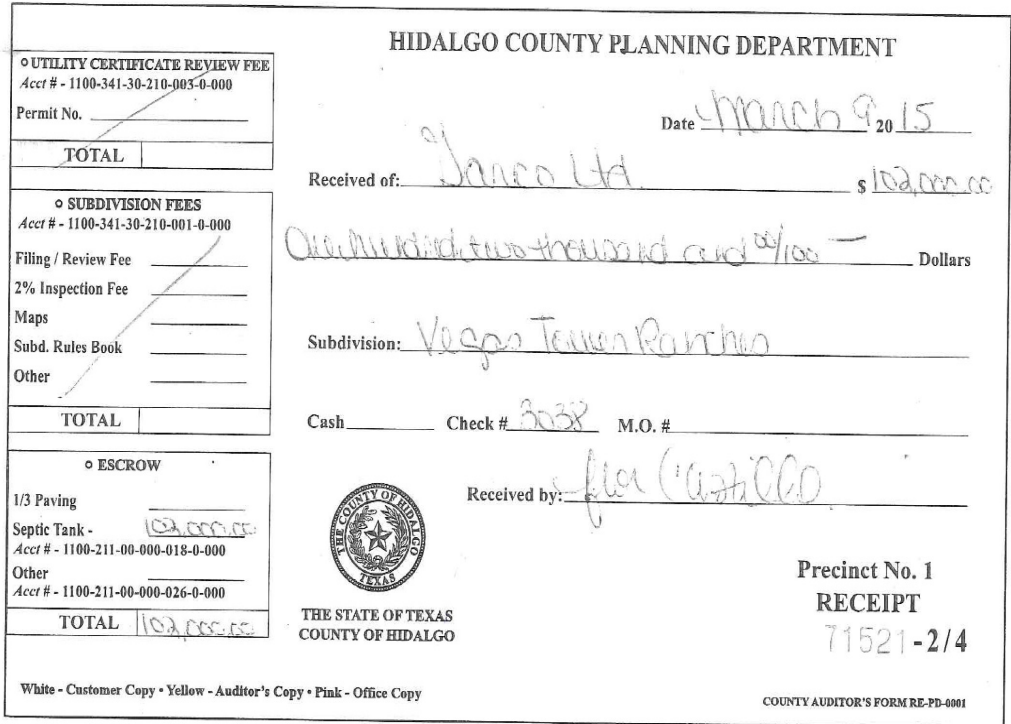 HIDALGO COUNTY PLANNING DEPARTMENT
o UTILITY CERTIFICATE REVIEW FEE
Acct # - 1100-341-30-210-003-0-000
Permit No.
TOTAL
o SUBDIVISION FEES
Acct # - 1100-341-30-210-001-0-000
Filing / Review Fee
2% Inspection Fee
Maps
Subd. Rules Book
Other
TOTAL
o ESCROW
1/3 Paving
Septic Tank - 102,000.00
Acct # - 1100-211-00-000-018-0-000
Other
Acct # - 1100-211-00-000-026-0-000
TOTAL 102,000.00
Date March 9 20 15
Received of: Ltd. $ 102,000.00
One hundred two thousand and 00/100 — Dollars
Subdivision: Vegas Ranches
Cash Check # 3038 M.O. #
Received by: Flor Castillo
THE COUNTY OF HIDALGO
TEXAS
THE STATE OF TEXAS
COUNTY OF HIDALGO
Precinct No. 1
RECEIPT
71521-2/4
White - Customer Copy • Yellow - Auditor's Copy • Pink - Office Copy
COUNTY AUDITOR'S FORM RE-PD-0001